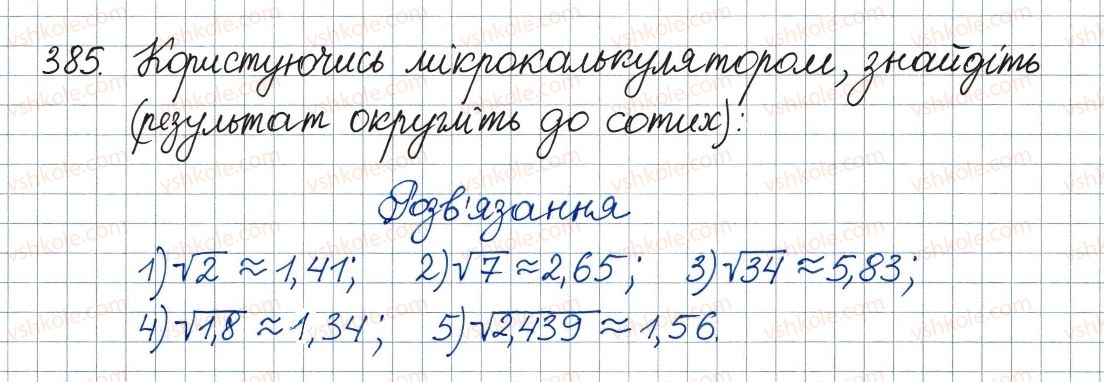 385. Користуючись мікрокалькулятором, знайдіть
(результат округліть до сотих):
Розв'язання
1) √2 ≈ 1,41; 2) √7 ≈ 2,65; 3) √34 ≈ 5,83;
4) √1,8 ≈ 1,34; 5) √2,439 ≈ 1,56.